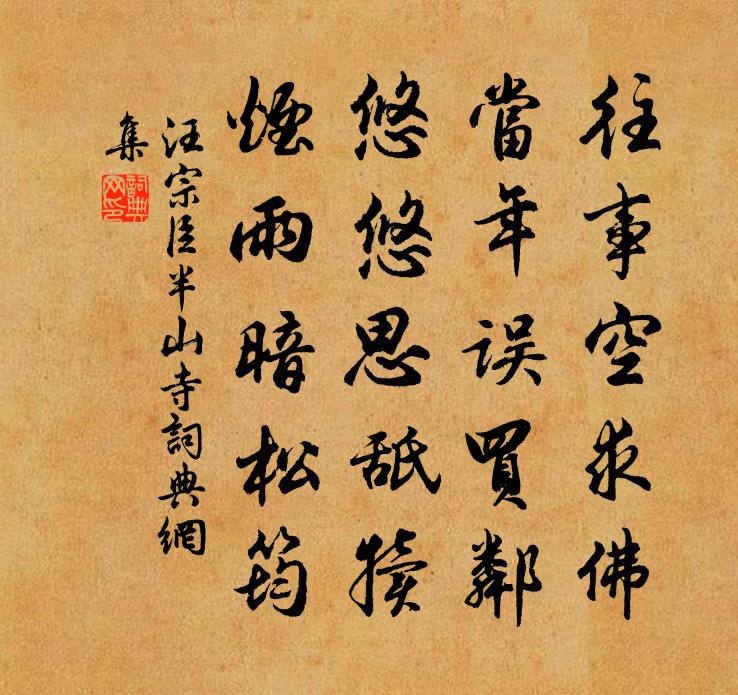 往事空求佛
當年误買鄰
悠悠思舐犢
煙雨暗松筠
汪宗臣半山寺詞典網
集
詞典
网印